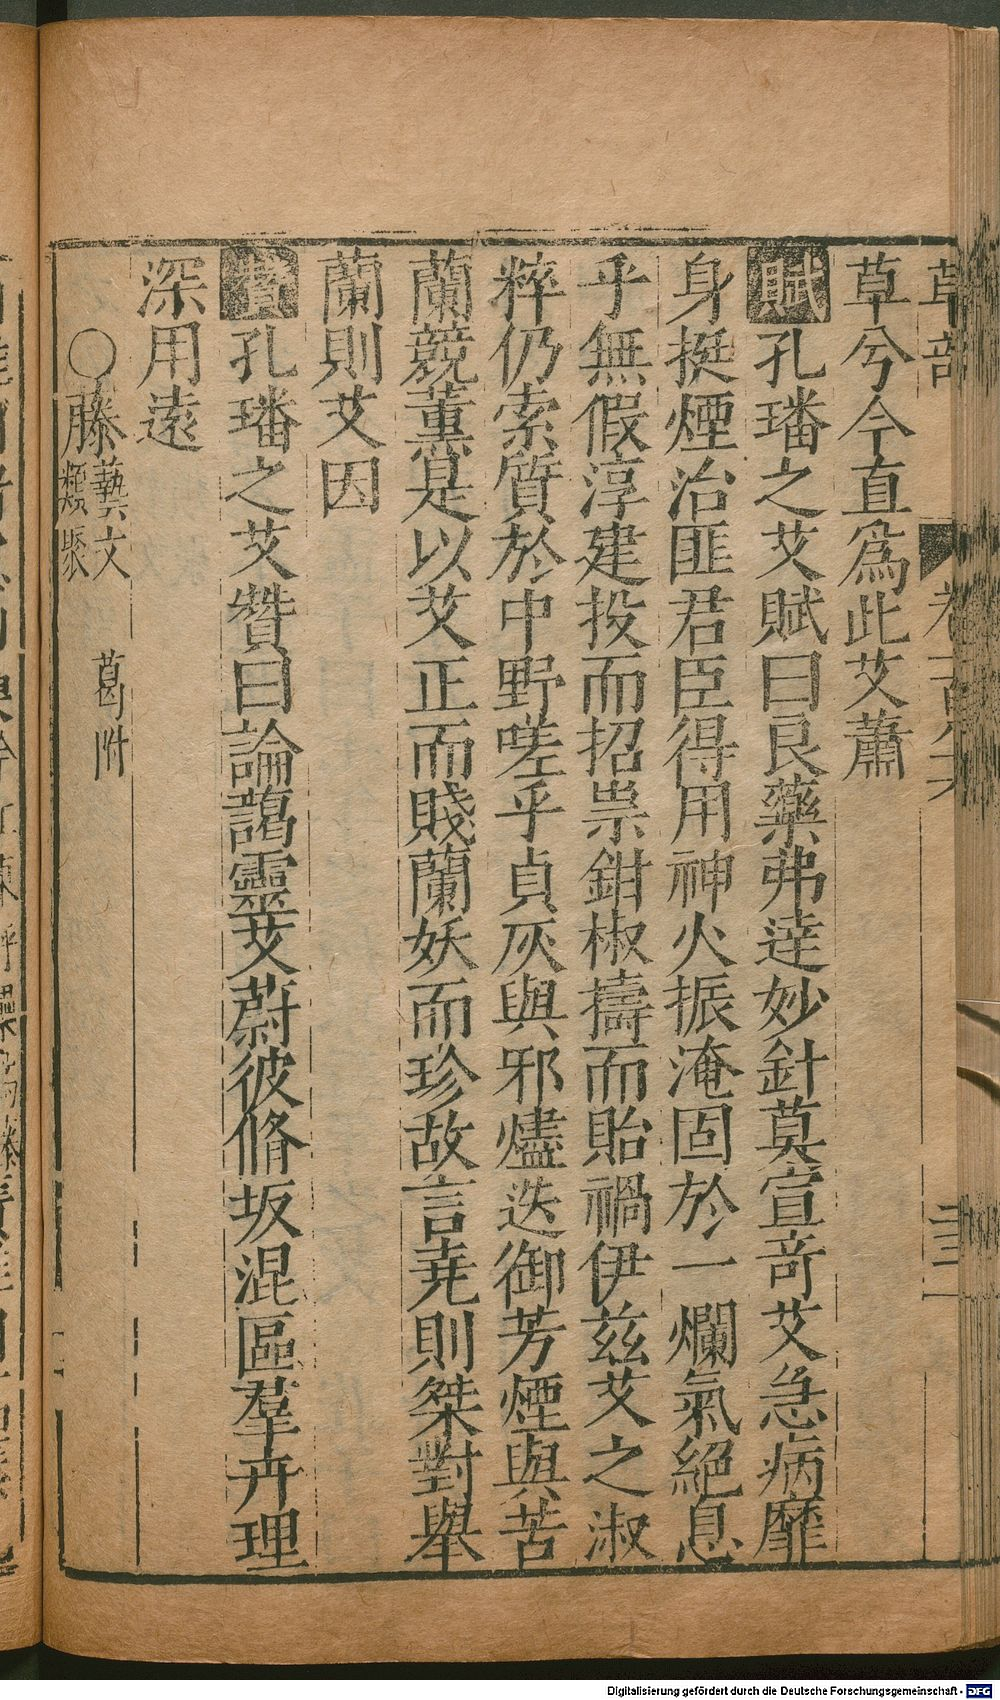 草部
草兮今直爲此艾蕭
賦孔璠之艾賦曰良藥弗達妙針莫宣竒艾急病靡
身挺煙治匪君臣得用神火振淹固於一爛氣絕息
乎無假淳建投而招祟鉗椒擣而貽禍伊兹艾之淑
粹仍索質於中野嗟乎貞灰與邪燼迭御芳煙與苦
蘭競薰是以艾正而賤蘭妖而珍故言堯則桀對舉
蘭則艾因
贊孔璠之艾贊曰論藹靈艾蔚彼脩坂混區羣卉理
深用遠
○藤藝文類聚 葛附
Digitalisierung gefördert durch die Deutsche Forschungsgemeinschaft - DFG